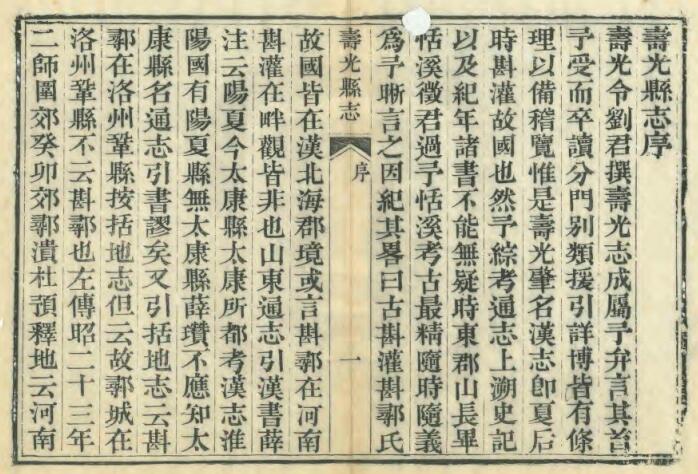 壽光縣志序
壽光令劉君撰壽光志成屬予弁言其首
予受而卒讀分門別類援引詳博皆有條
理以備稽覽惟是壽光肇名漢志卽夏后
時斟灌故國也然予綜考通志上溯史記
以及紀年諸書不能無疑時東郡山長畢
恬溪徵君過予恬溪考古最精隨時隨義
爲予晰言之因紀其畧曰古斟灌斟鄩氏
壽光縣志
序
一
故國皆在漢北海郡境或言斟鄩在河南
斟灌在畔觀皆非也山東通志引漢書薛
注云陽夏今太康縣太康所都考漢志淮
陽國有陽夏縣無太康縣薛瓚不應知太
康縣名通志引書謬矣又引括地志云斟
鄩在洛州鞏縣按括地志但云故鄩城在
洛州鞏縣不云斟鄩也左傳昭二十三年
二師圍郊癸卯郊鄩潰杜預釋地云河南